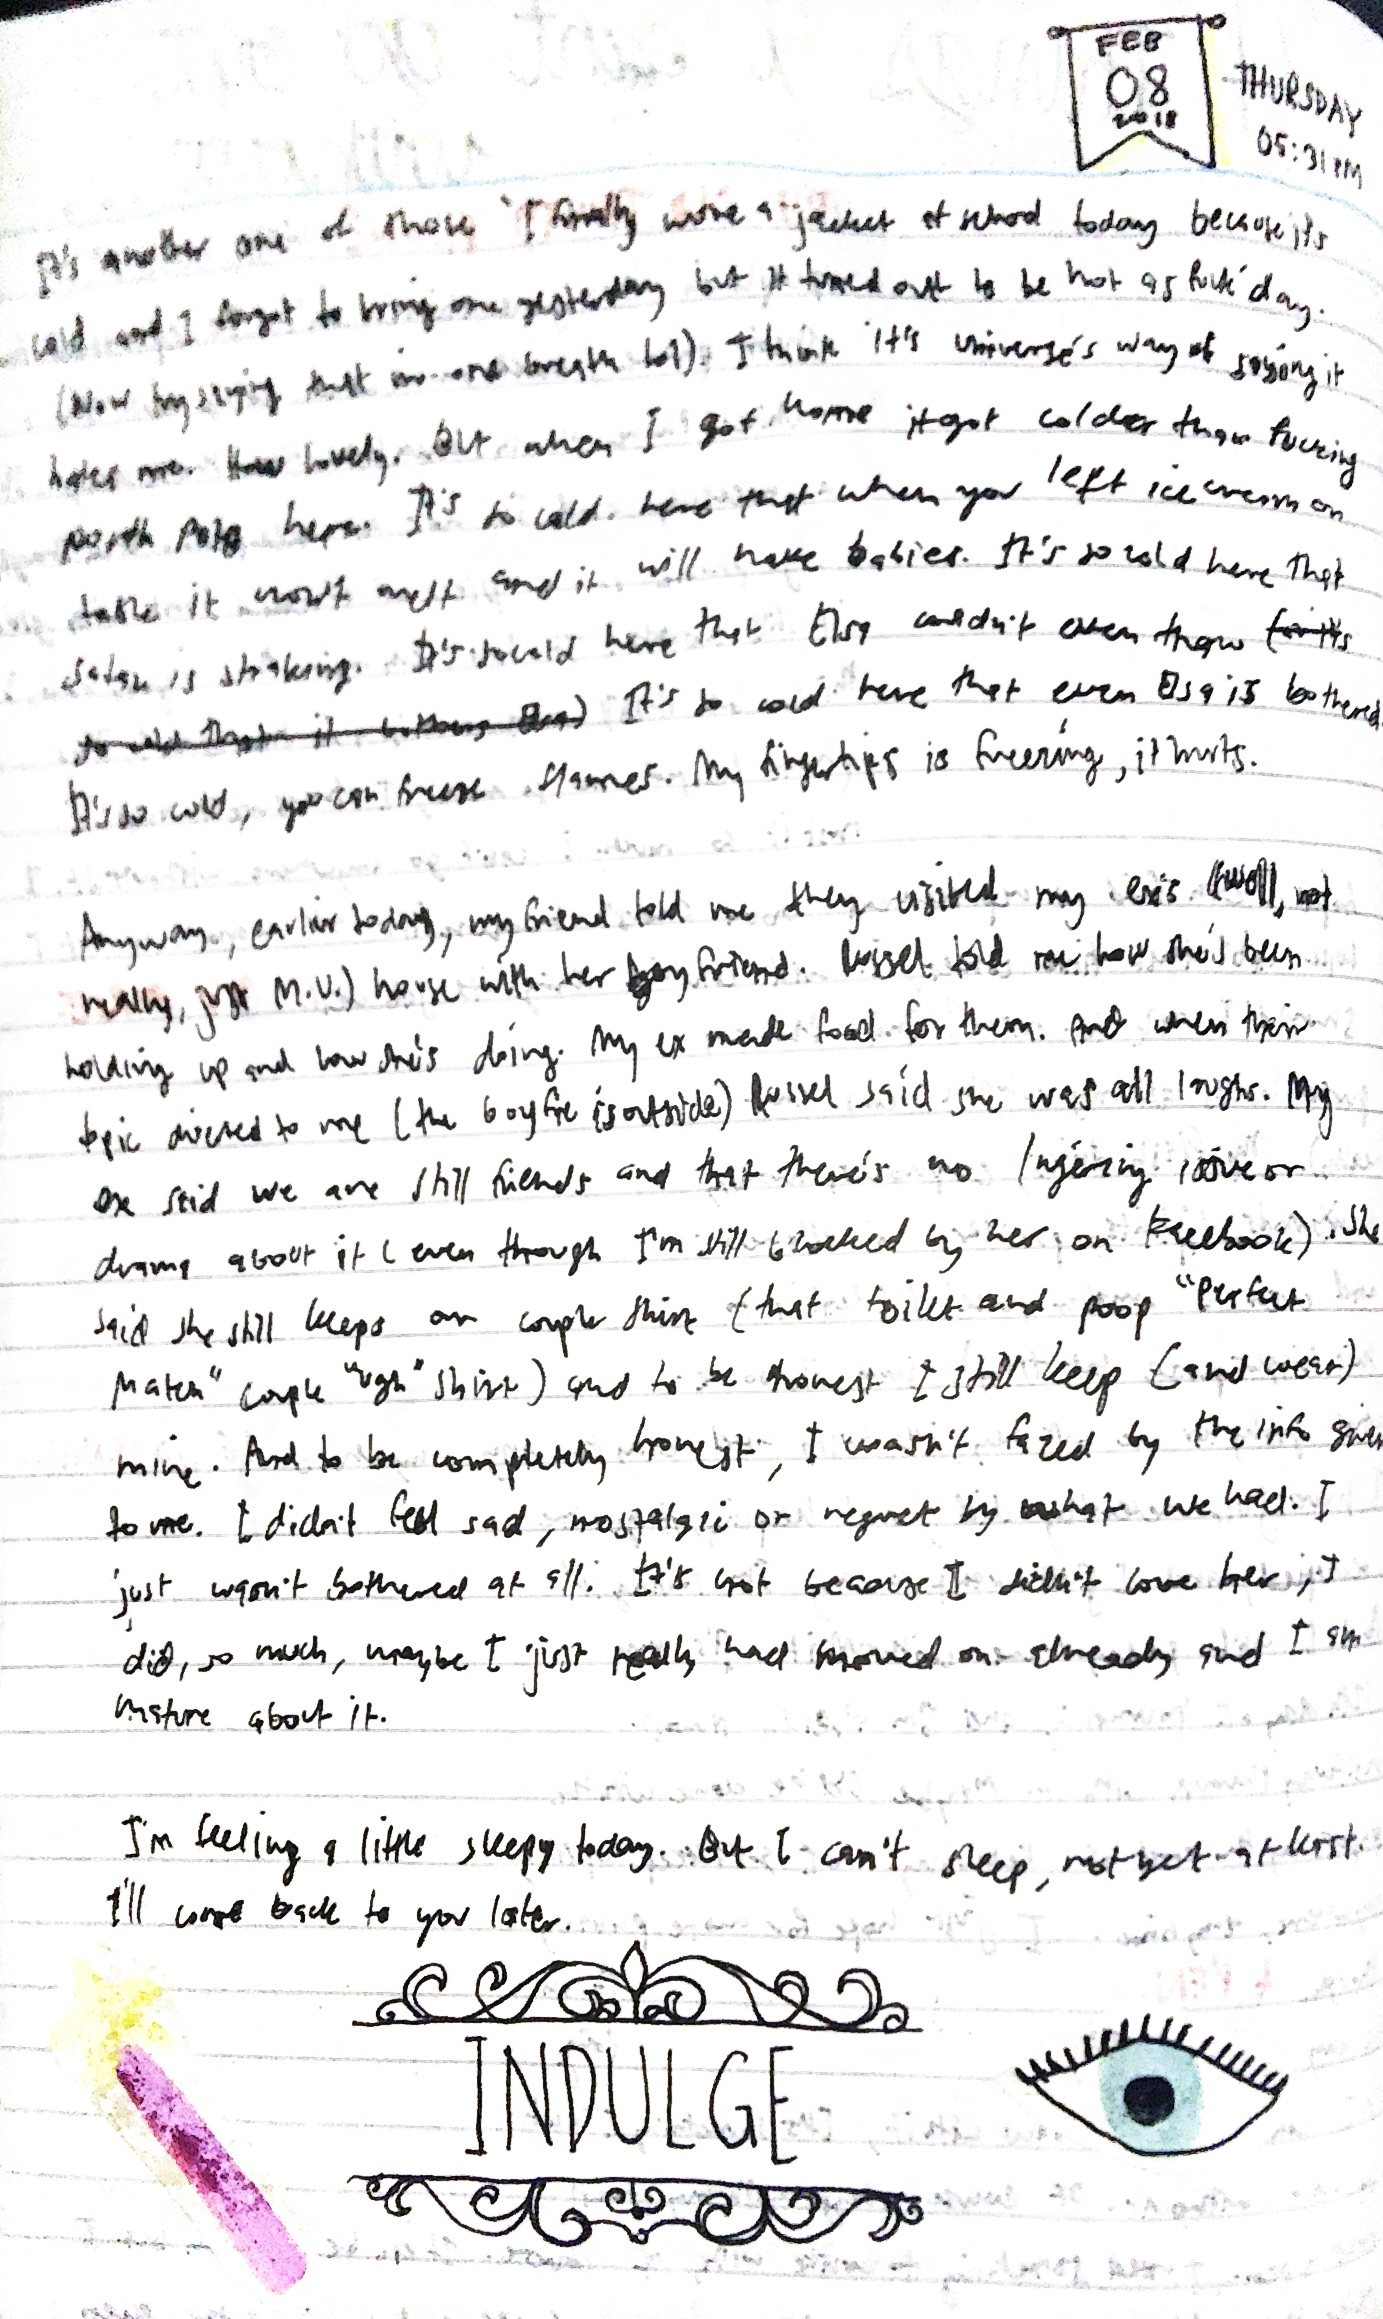 FEB
08
2018
THURSDAY
05:31 PM
It's another one of those 'I finally wore a jacket at school today because it's
cold and I forgot to bring one yesterday but it turned out to be hot as fuck' day.
(Now try saying that in one breath lol). I think it's universe's way of saying it
hates me. How lovely. But when I got home it got colder than fucking
north pole here. It's so cold here that when you left ice cream on
table it won't melt and it will make babies. It's so cold here that
Satan is shaking. It's so cold here that Elsa couldn't even thaw (for it's
so cold that it bothers Elsa) It's so cold here that even Elsa is bothered.
It's so cold, you can freeze flames. My fingertips is freezing, it hurts.
Anyway, earlier today, my friend told me they visited my ex's (well, not
really, just M.U.) house with her boyfriend. Russel told me how she's been
holding up and how she's doing. My ex made food for them. And when their
topic diverted to me (the boyfie is outside) Russel said she was all laughs. My
ex said we are still friends and that there's no lingering issue or
drama about it (even through I'm still blocked by her on Facebook). She
said she still keeps our couple shirt (that toilet and poop "Perfect
Match" couple "ugh" shirt) and to be honest I still keep (and wear)
mine. And to be completely honest, I wasn't fazed by the info given
to me. I didn't feel sad, nostalgic or regret by what we had. I
just wasn't bothered at all. It's not because I didn't love her, I
did, so much, maybe I just really had moved on already and I am
mature about it.
I'm feeling a little sleepy today. But I can't sleep, not yet at least.
I'll come back to you later.
INDULGE